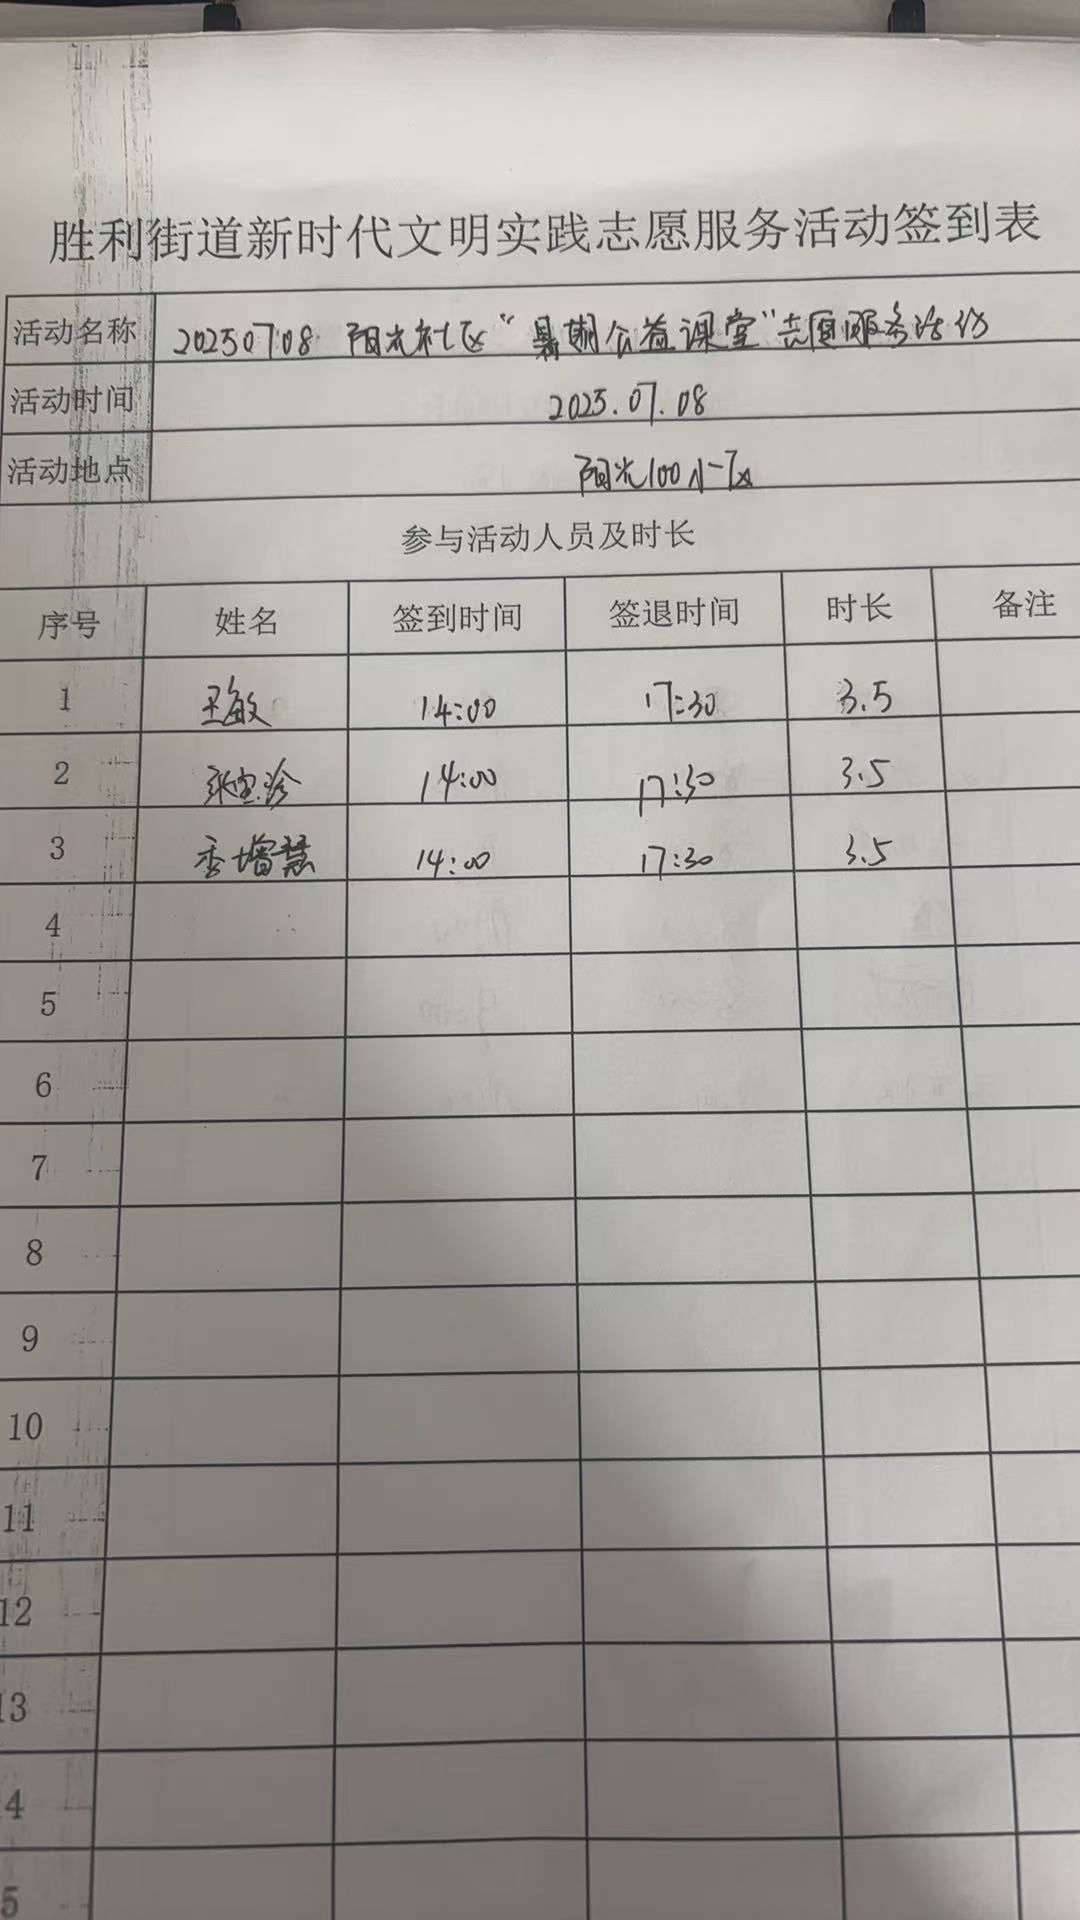 胜利街道新时代文明实践志愿服务活动签到表
活动名称 20250708 阳光社区“暑期公益课堂”志愿服务活动
活动时间 2025.07.08
活动地点 阳光100小区
参与活动人员及时长
序号 姓名 签到时间 签退时间 时长 备注
1 王敏 14:00 17:30 3.5
2 14:00 17:30 3.5
3 李增慧 14:00 17:30 3.5
4
5
6
7
8
9
10
11
12
13
4
5